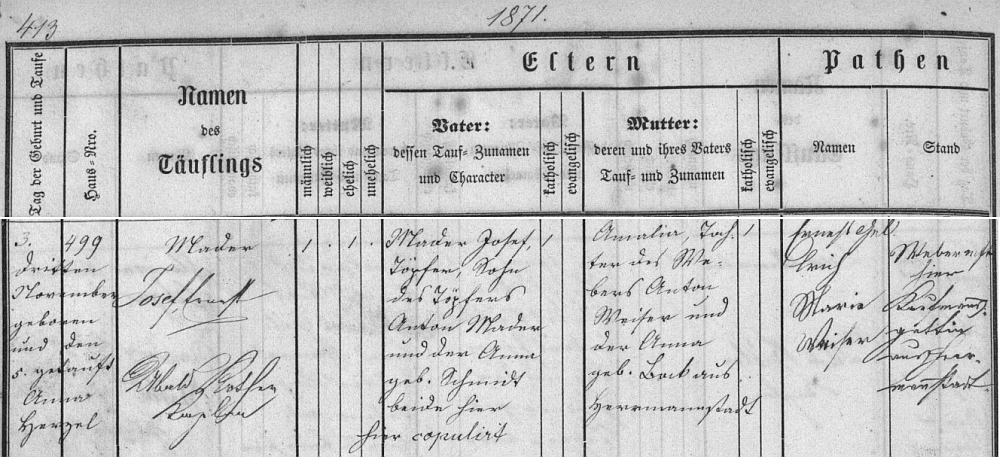 413
1871.
Tag der Geburt und Taufe
Haus-Nro.
Namen
des
Täuflings
männlich
weiblich
ehelich
unehelich
Eltern
Vater:
dessen Tauf- Zunamen
und Character
katholisch
evangelisch
Mutter:
deren und ihres Vaters
Tauf- und Zunamen
katholisch
evangelisch
Pathen
Namen
Stand
3.
dritten
November
geboren
und den
5. getauft
Anna
Herzel
499
Mader
Josef, Ernst
Kaplan
1 . 1 .
Mader Josef,
Töpfer, Sohn
des Töpfers
Anton Mader
und der Anna
geb. Schmidt
beide hier
hier copulirt
1
Amalia, Toch-
ter des We-
bers Anton
Weiser und
der Anna
geb. Bock aus
Herrmannstadt
1
Ernest
Marie
Weiser
hier
Kaufmanns-
gattin
aus Herr-
mannstadt.